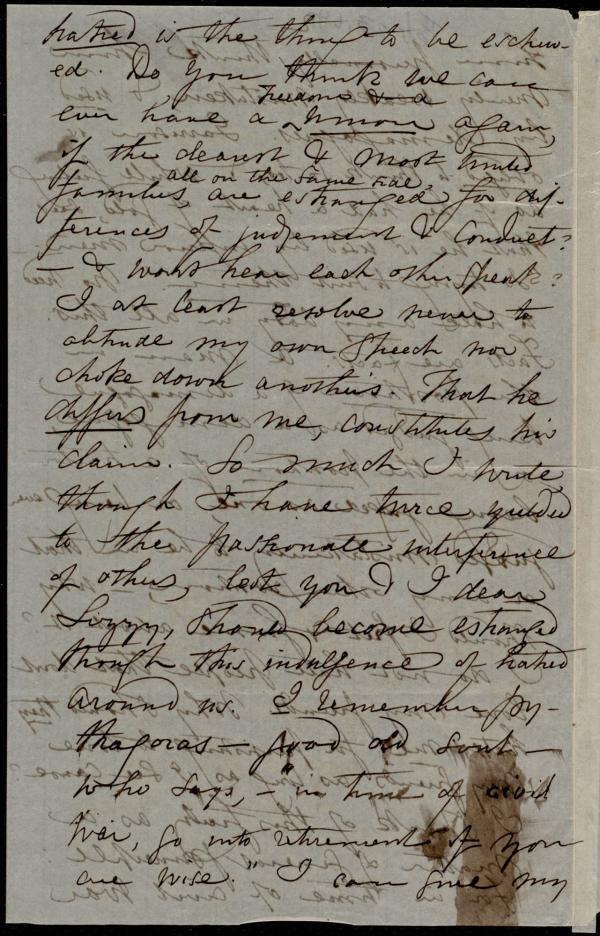 hatred is the thing to be eschew-
ed. Do you think we can
freedom & a
ever have a Union again,
if the dearest & most united
all on the same side,
families, are estranged for dif-
ferences of judgement & conduct?
— & wont hear each other speak?
I at least resolve never to
obtrude my own speech nor
choke down anothers. That he
differs from me, constitutes his
claim. So much I write,
though I have twice yielded
to the passionate interference
of others, lest you & I dear
Lizzy, should become estranged
through this indulgence of hatred
around us. I remember Py-
thagoras — good old soul —
who says, — "in time of civil
War, go into retirement if you
are wise." I can give my